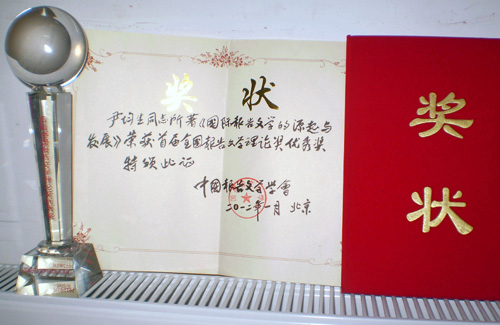 奖 状
尹均生同志所著《国际报告文学的源起与
发展》荣获首届全国报告文学理论奖优秀奖
特颁此证
中国报告文学学會
二〇一二年一月 北京
奖
状